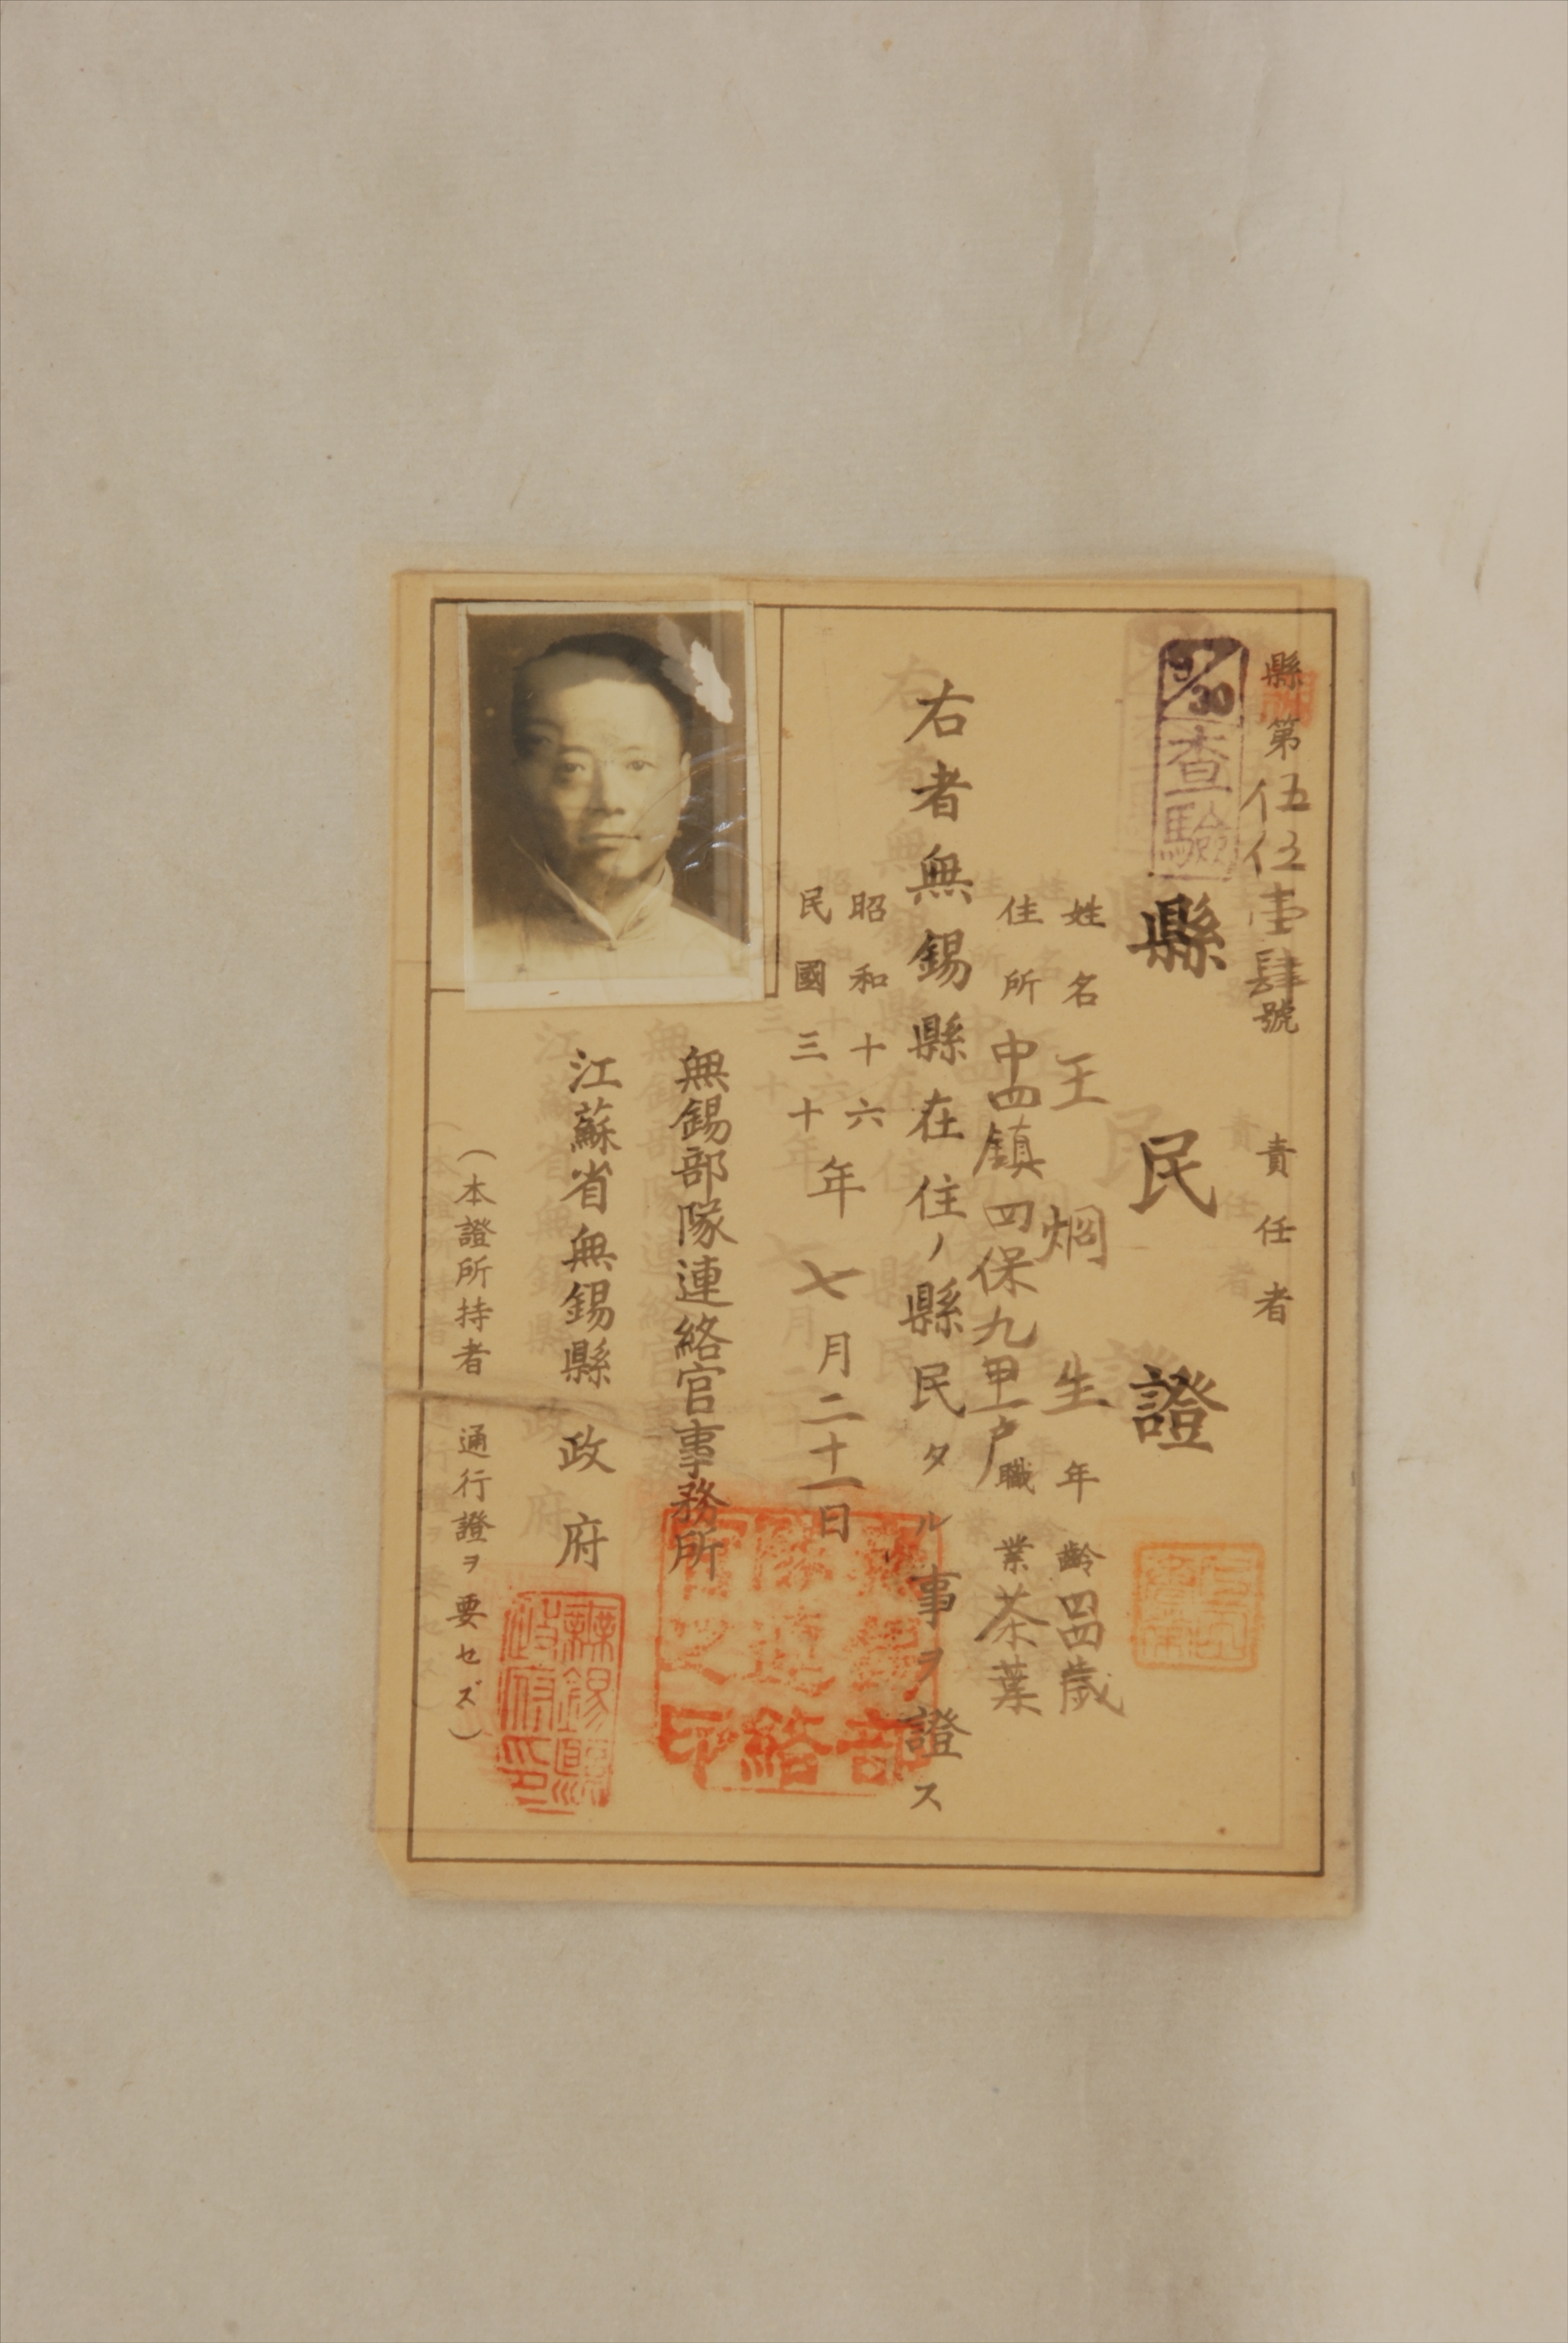 縣第伍伍壹肆號 責任者
9/30
查驗
縣民證
姓名 王炯生 年齡 四四歲
住所 中四鎮四保九甲一户 職業 茶葉
右者無錫縣在住ノ縣民タル事ヲ證ス
昭和十六
民國三十
年七月二十一日
無錫部隊連絡官事務所
無錫部隊連絡官之印
江蘇省無錫縣政府
無錫縣政府印
（本證所持者 通行證ヲ要セズ）